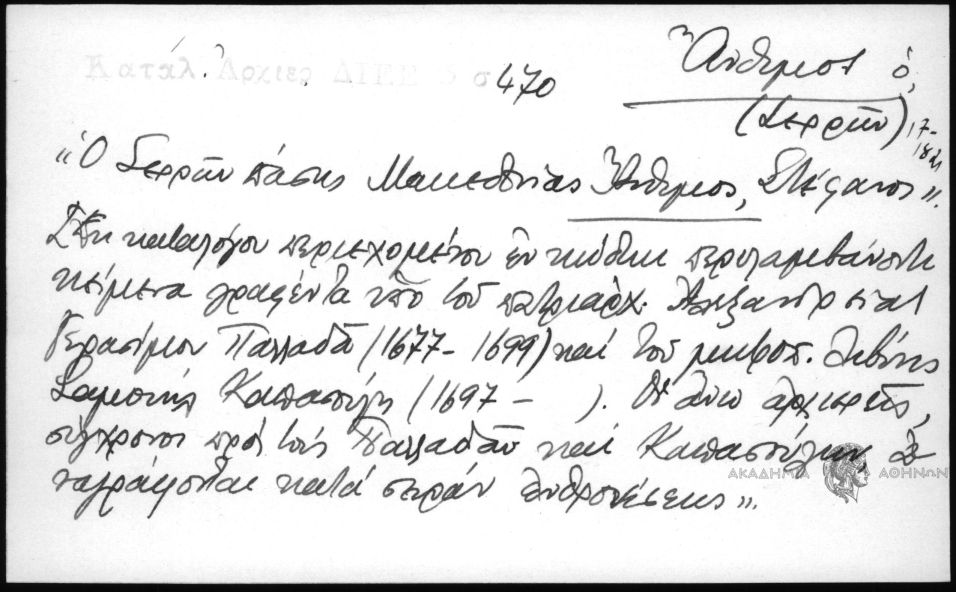 Κατάλ. Ἀρχιερ ΔΙΕΕ 3 σ 470
Ἄνθιμος ὁ,
(Σερρῶν) 17-
18 αι
"Ὁ Σερρῶν πάσης Μακεδονίας Ἄνθιμος, Στέφανος".
Ἐκ καταλόγου περιεχομένου ἐν κώδικι περιλαμβάνοντι
κείμενα γραφέντα ὑπὸ τοῦ πατριάρχ. Ἀλεξανδρείας
Γερασίμου Παλλαδᾶ (1677-1699) καὶ τοῦ μητροπ. Λιβύης
Σαμουὴλ Καπασούλη (1697 - ). Οἱ ἄνω ἀρχιερεῖς,
σύγχρονοι πρὸς τοὺς Παλλαδᾶν καὶ Καπασούλην, ἀ-
ναγράφονται κατὰ σειρὰν ἐνθρονίσεως".
ΑΚΑΔΗΜΙΑ ΑΘΗΝΩΝ